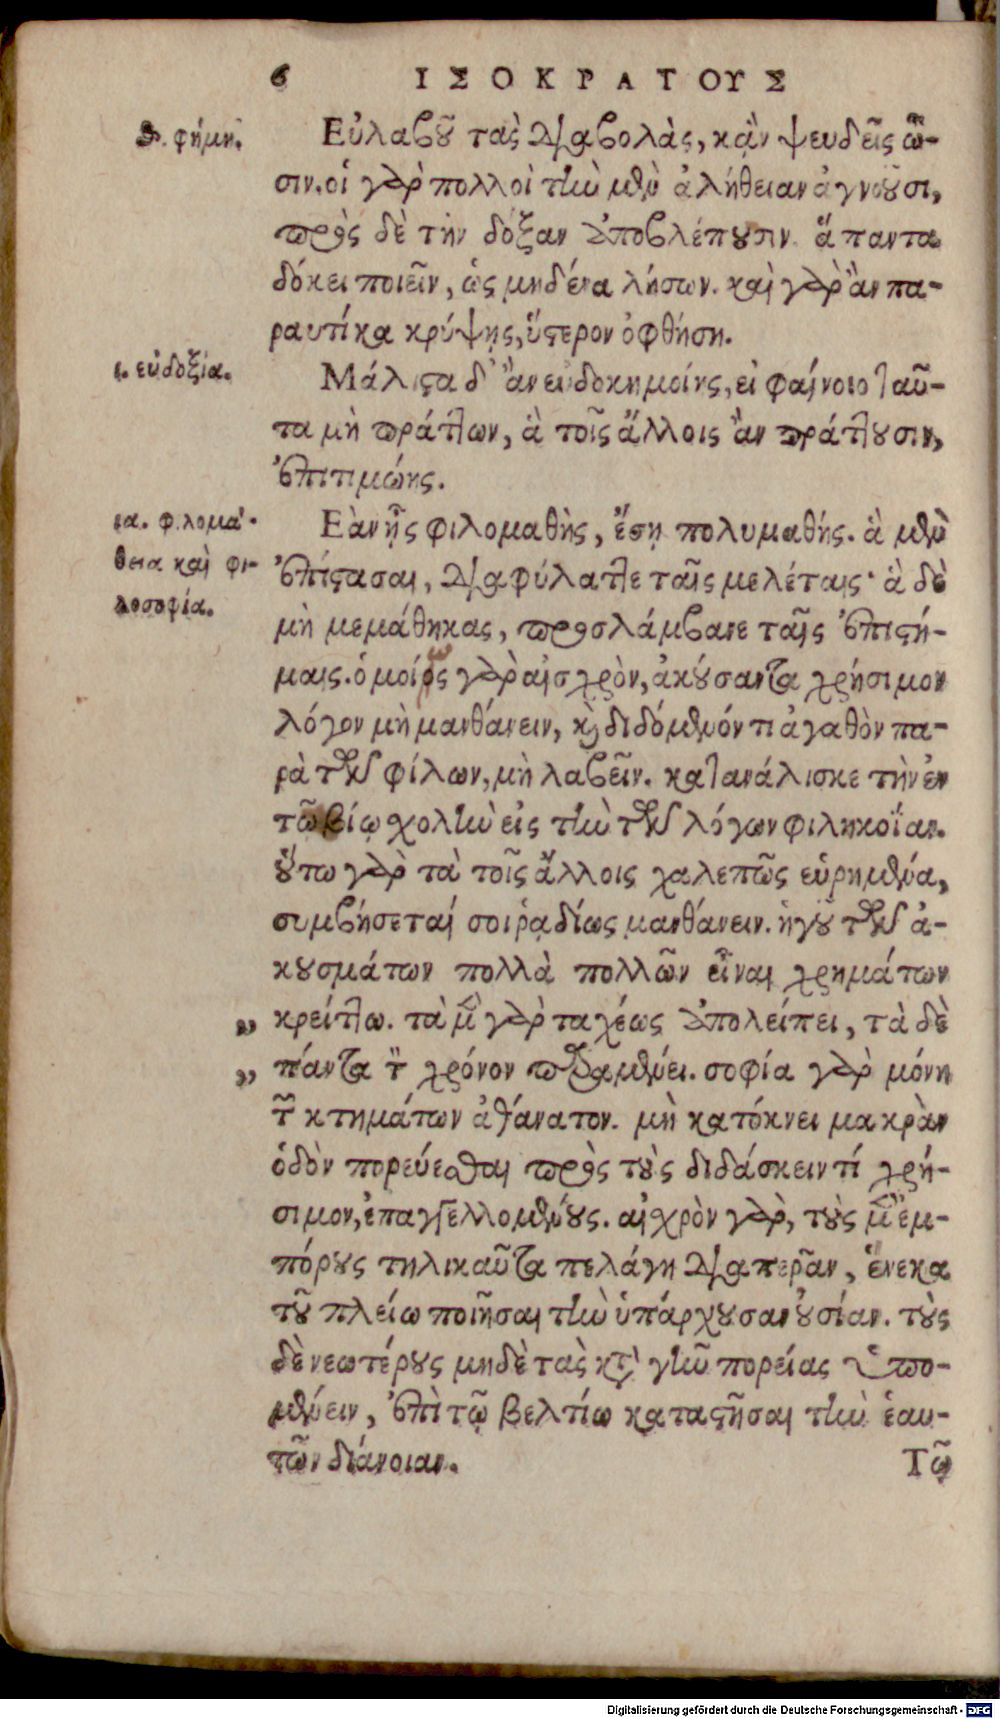 6 ΙΣΟΚΡΑΤΟΥΣ
θ. φήμη.
Εὐλαβοῦ τὰς διαβολὰς, κἂν ψευδεῖς ὦ-
σιν. οἱ γὰρ πολλοὶ τὴν μὲν ἀλήθειαν ἀγνοοῦσι,
πρὸς δὲ τὴν δόξαν ἀποβλέπουσιν. ἅπαντα
δόκει ποιεῖν, ὡς μηδένα λήσων. καὶ γὰρ ἂν πα-
ραυτίκα κρύψῃς, ὕστερον ὀφθήσῃ.
ι. εὐδοξία.
Μάλιστα δ' ἂν εὐδοκιμοίης, εἰ φαίνοιο ταῦ-
τα μὴ πράττων, ἃ τοῖς ἄλλοις ἂν πράττουσιν,
ἐπιτιμῴης.
ια. φιλομά-
θεια καὶ φι-
λοσοφία.
Εὰν ᾖς φιλομαθὴς, ἔσῃ πολυμαθής. ἃ μὲν
ἐπίστασαι, διαφύλαττε ταῖς μελέταις· ἃ δὲ
μὴ μεμάθηκας, προσλάμβανε ταῖς ἐπιστή-
μαις. ὁμοίως γὰρ αἰσχρὸν, ἀκούσαντα χρήσιμον
λόγον μὴ μανθάνειν, καὶ διδόμενόν τι ἀγαθὸν πα-
ρὰ τῶν φίλων, μὴ λαβεῖν. κατανάλισκε τὴν ἐν
τῷ βίῳ χολὴν εἰς τὴν τῶν λόγων φιληκοΐαν.
οὕτω γὰρ τὰ τοῖς ἄλλοις χαλεπῶς εὑρημένα,
συμβήσεταί σοι ῥᾳδίως μανθάνειν. ἡγοῦ τῶν ἀ-
κουσμάτων πολλὰ πολλῶν εἶναι χρημάτων
κρείττω. τὰ μὲν γὰρ ταχέως ἀπολείπει, τὰ δὲ
πάντα τὸν χρόνον παραμένει. σοφία γὰρ μόνη
τῶν κτημάτων ἀθάνατον. μὴ κατόκνει μακρὰν
ὁδὸν πορεύεσθαι πρὸς τοὺς διδάσκειν τί χρή-
σιμον, ἐπαγγελλομένους. αἰχρὸν γὰρ, τοὺς μὲν ἐμ-
πόρους τηλικαῦτα πελάγη διαπερᾶν, ἕνεκα
τοῦ πλείω ποιῆσαι τὴν ὑπάρχουσαν οὐσίαν. τοὺς
δὲ νεωτέρους μηδὲ τὰς κατὰ γῆν πορείας ὑπο-
μένειν, ἐπὶ τῷ βελτίω καταστῆσαι τὴν ἑαυ-
τῶν διάνοιαν.
Τῷ
Digitalisierung gefördert durch die Deutsche Forschungsgemeinschaft - DFG